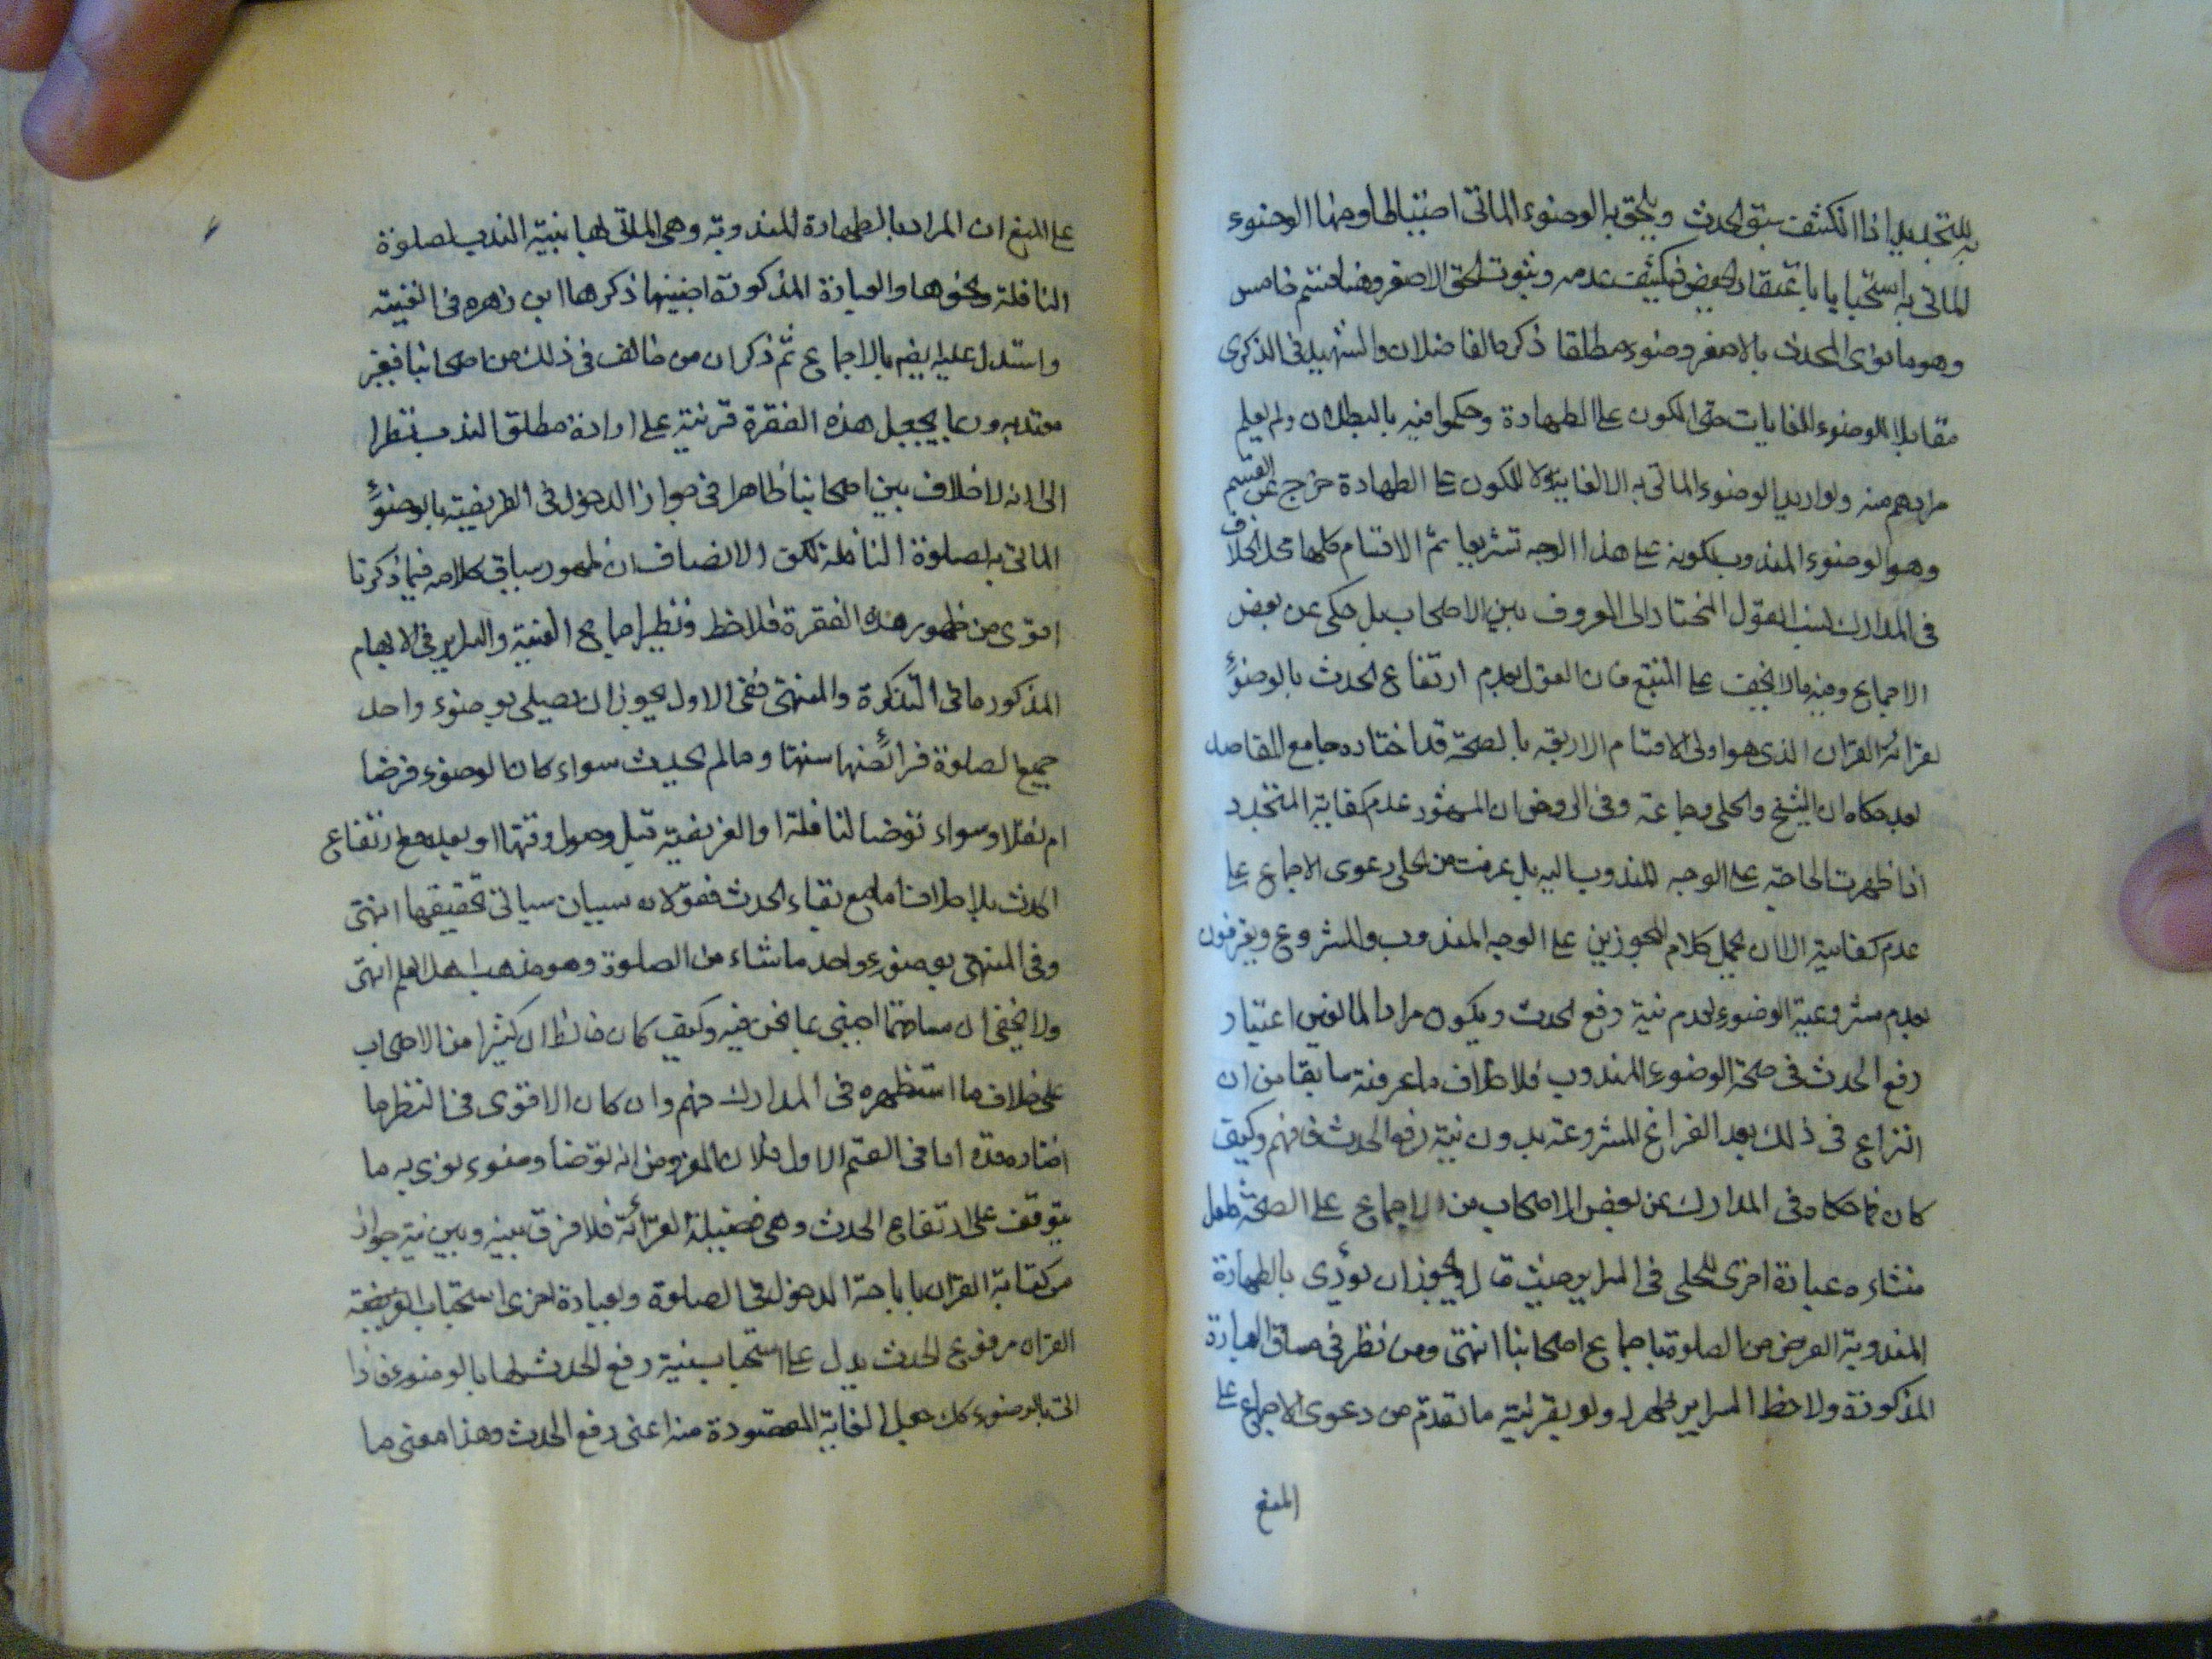 به للتجديد اذا انكشف سبق الحدث ويلحق به الوضوء الماتى احتياطا ومنها الوضوء
الماتى به استحبابا باعتقاد الحيض فيكشف عدمه وثبوت الاصغر وهنا قسم خامس
وهو ما نوى المحدث بالاصغر وضوء مطلقا ذكره الفاضلان والشهيد فى الذكرى
مقابلا للوضوء للغايات حتى الكون على الطهارة وحكموا فيه بالبطلان ولم يعلم
مرادهم منه ولو اريد الوضوء الماتى به لا لغاية ولا للكون على الطهارة خرج عن القسم
وهو الوضوء المندوب لكونه على هذا الوجه تشريعا ثم الاقسام كلها محل الخلاف
فى المدارك نسب القول المختار الى المعروف بين الاصحاب بل حكى عن بعض
الاجماع وفيه ما لا يخفى على المتتبع فان القول بعدم ارتفاع الحدث بالوضوء
لقرائة القران الذى هو اولى الاقسام الاربعة بالصحة قد اختاره جامع المقاصد
بعد حكاه ان الشيخ والحلى وجماعة وفى الروض ان المشهور عدم كفاية المتجدد
اذا ظهرت الحاجة على الوجه المندوب اليه بل عرفت من الحلى دعوى الاجماع على
عدم كفايته الا ان يحمل كلام المجوزين على الوجه المندوب والمشروع ويعترفون
بعدم مشروعية الوضوء لعدم نية رفع الحدث ويكون مراد المانعين اعتبار
رفع الحدث فى صحة الوضوء المندوب فلا خلاف ما عرفته سابقا من ان
النزاع فى ذلك بعد الفراغ المشروعية بدون نية رفع الحدث فافهم وكيف
كان فما حكاه فى المدارك عن بعض الاصحاب من الاجماع على الصحة فلعل
منشاءه عبارة اخرى للحلى فى السرائر حيث قال ويجوز ان يؤدى بالطهارة
المندوبة الفرض من الصلوة باجماع اصحابنا انتهى ومن نظر فى مساق العبارة
المذكورة ولاحظ السرائر ظهر له ولو بقرينة ما تقدم من دعوى الاجماع على
المنع
على المنع ان المراد بالطهارة المندوبة وهى الماتى لها بنية الندب لصلوة
النافلة ونحوها والعبارة المذكورة بعينها ذكرها ابن زهره فى الغنية
واستدل عليه ايضا بالاجماع ثم ذكر ان من خالف فى ذلك من اصحابنا فغير
معتد به وربما يجعل هذه الفقرة قرينة على ارادة مطلق الندب نظرا
الى انه لا خلاف بين اصحابنا ظاهرا فى جواز الدخول فى الفريضة بالوضوء
الماتى به لصلوة النافلة لكن الانصاف ان ظهور سياق كلامه فيما ذكرنا
اقوى من ظهور هذه الفقرة فلاحظ ونظير اجماع الغنية والسرائر فى الايهام
المذكور ما فى التذكرة والمنتهى ففى الاول يجوز ان يصلى بوضوء واحد
جميع الصلوة فرائضها سننها وما لم يحدث سواء كان الوضوء فرضا
ام نفلا وسواء توضا لنافلة او الفريضة قبل دخول وقتها او بعده مع ارتفاع
الحدث بلا خلاف اما مع بقاء الحدث فقولان سيان سياتى تحقيقها انتهى
وفى المنتهى بوضوء واحد ما شاء من الصلوة وهو مذهب اهل العلم انتهى
ولا يخفى ان مساقهما اجنبى عما نحن فيه وكيف كان فالظ ان كثيرا من الاصحاب
على خلاف ما استظهره فى المدارك منهم وان كان الاقوى فى النظر ما
اختاره قده اما فى القسم الاول فلان المفروض انه توضا وضوء نوى به ما
يتوقف على ارتفاع الحدث وهى فضيلة القرائة فلا فرق بينه وبين نية جواز
مس كتابة القران باباحة الدخول فى الصلوة وبعبارة اخرى استحباب الفريضة
القران مرفوع الحدث يدل على استحباب نية رفع الحدث لها بالوضوء فاذا
اتى بالوضوء كك حصل الغاية المقصودة منه اعنى رفع الحدث وهذا معنى ما